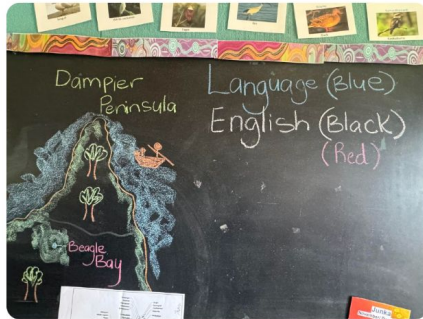 Dampier
Peninsula
Language (Blue)
English (Black)
(Red)
Beagle
Bay
Junka